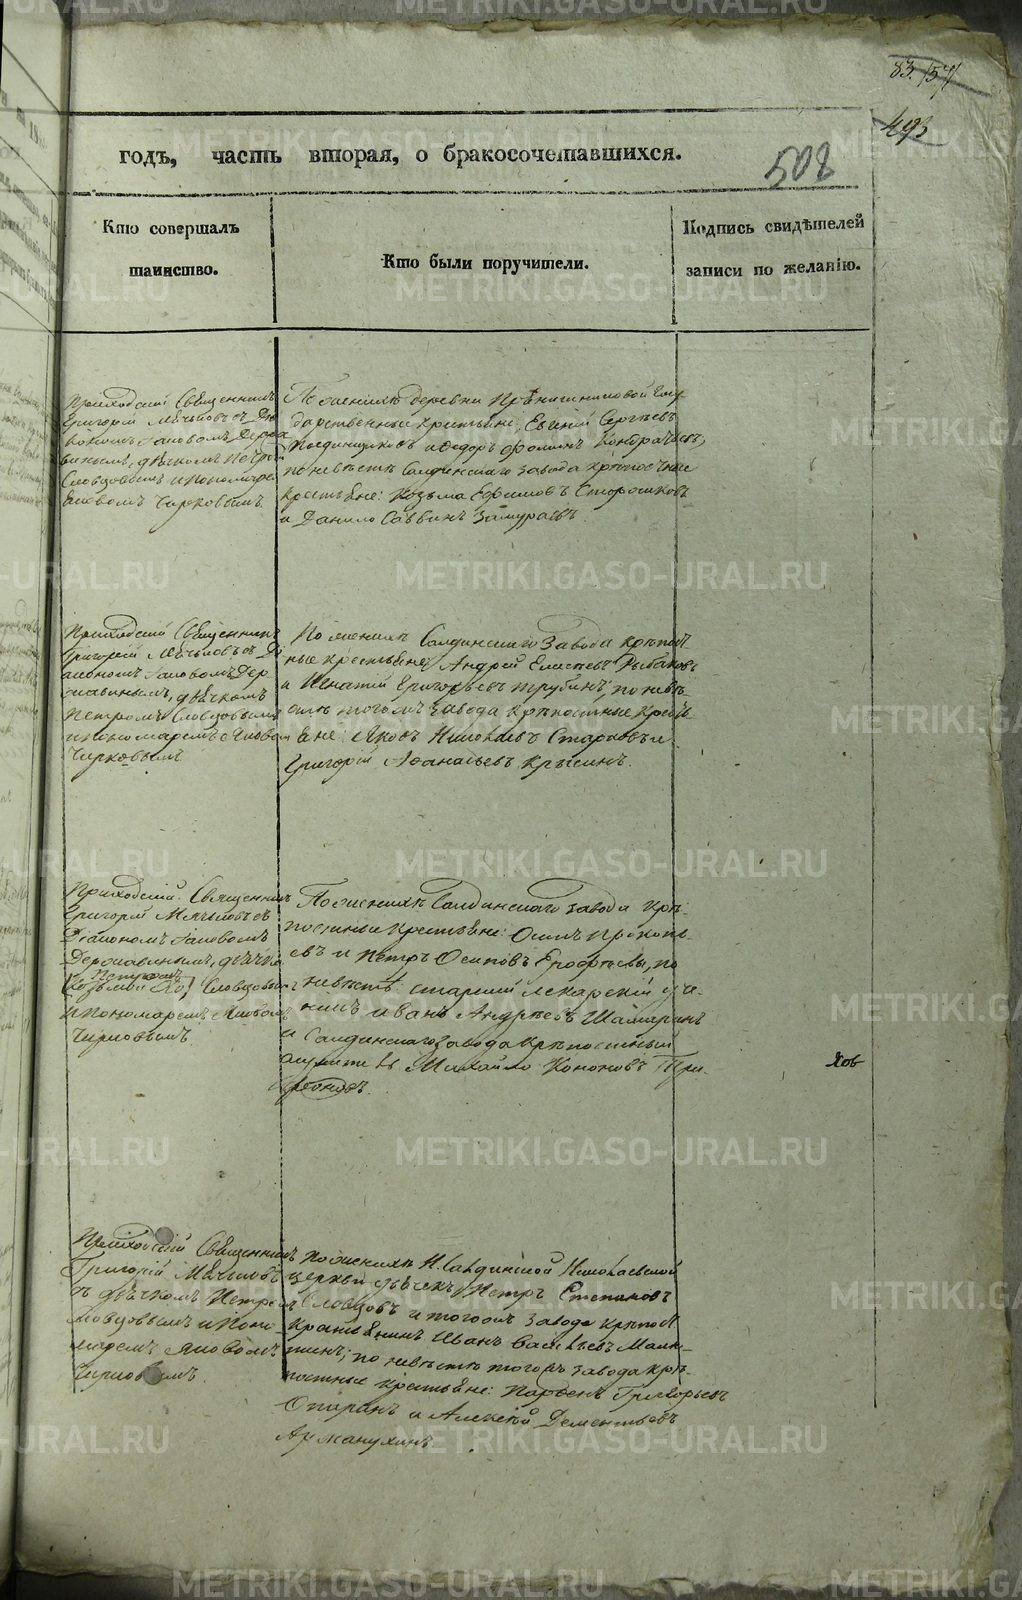 83. 157
493
508
годъ, часть вторая, о бракосочетавшихся.
Кто совершалъ
таинство.
Кто были поручители.
Подпись свидѣтелей
записи по желанію.
Приходскій Священникъ
Григорій съ Діа
Іаковомъ Держа
винымъ, дьячкомъ Петромъ
Словцовымъ и пономаремъ
Іаковомъ Чирковымъ.
По женихѣ деревни Госу
дарственные крестьяне: Евгеній Сергѣевъ
и Федоръ Фоминъ Кондратьевъ,
по невѣстѣ Салдинскаго завода крѣпостные
крестьяне: Козьма Ефимовъ Сторожковъ
и Данило Саввинъ Замураевъ.
Приходскій Священникъ
Григорій съ Ді
акономъ Іаковомъ Дер
жавинымъ, дьячкомъ
Петромъ Словцовымъ
и пономаремъ Іаковом
Чирковымъ
По женихѣ Салдинскаго Завода крѣпост
ные крестьяне: Андрей Елисѣевъ Рыбаковъ
и Игнатій Григорьевъ Трубинъ; по невѣ
стѣ тогожъ завода крѣпостные кресть
яне: Яковъ Николаевъ Старковъ и
Григорій Афанасьевъ Крысинъ.
Приходскій Священникъ
Григорій съ
Діакономъ Іаковомъ
Державинымъ, дьячко
Петромъ
Козьмой Словцовым
и пономаремъ Яковомъ
Чирковымъ
По женихѣ Салдинскаго завода крѣ-
постные крестьяне: Осипъ Прокопь-
евъ и Петръ Осиповъ Ерофѣевы, по
невѣстѣ: старшій лекарскій уче-
никъ Иванъ Андрѣевъ Шамаринъ
и Салдинскаго завода крѣпостный
Михайло Кононовъ Три-
фоновъ.
Яов
Приходскій Священникъ
Григорій
съ дьячкомъ Петромъ
Словцовымъ и Поно
маремъ Яковомъ
Чирковымъ.
По женихѣ Н. Салдинской Николаевской
церкви дьячекъ Петръ Степановъ
Словцовъ и тогожъ завода крѣпост
крестьянинъ Иванъ Васильевъ Маля-
гинъ; по невѣстѣ тогожъ завода крѣ-
постные крестьяне: Парфенъ Григорьевъ
Опаринъ и Алексѣй Дементьевъ
METRIKI.GASO-URAL.RU